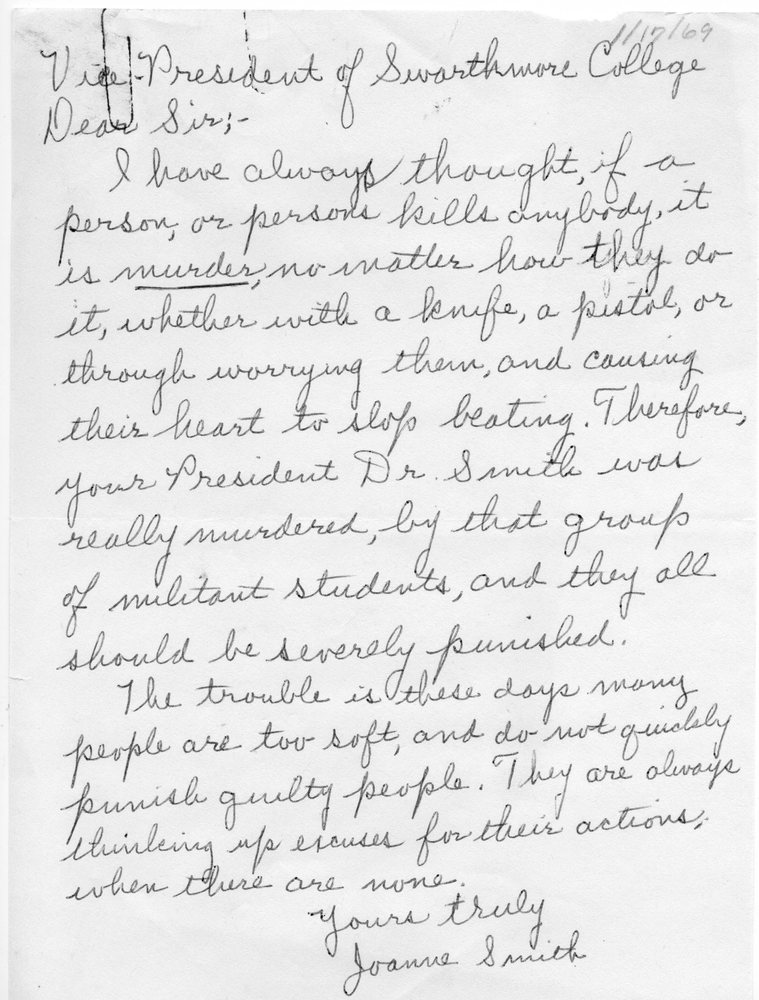 1/17/69
Vice-President of Swarthmore College
Dear Sir;-
I have always thought, if a
person, or persons kills anybody, it
is murder, no matter how they do
it, whether with a knife, a pistol, or
through worrying them, and causing
their heart to stop beating. Therefore,
your President Dr. Smith was
really murdered, by that group
of militant students, and they all
should be severely punished.
The trouble is these days many
people are too soft, and do not quickly
punish guilty people. They are always
thinking up excuses for their actions,
when there are none.
Yours truly
Joanne Smith